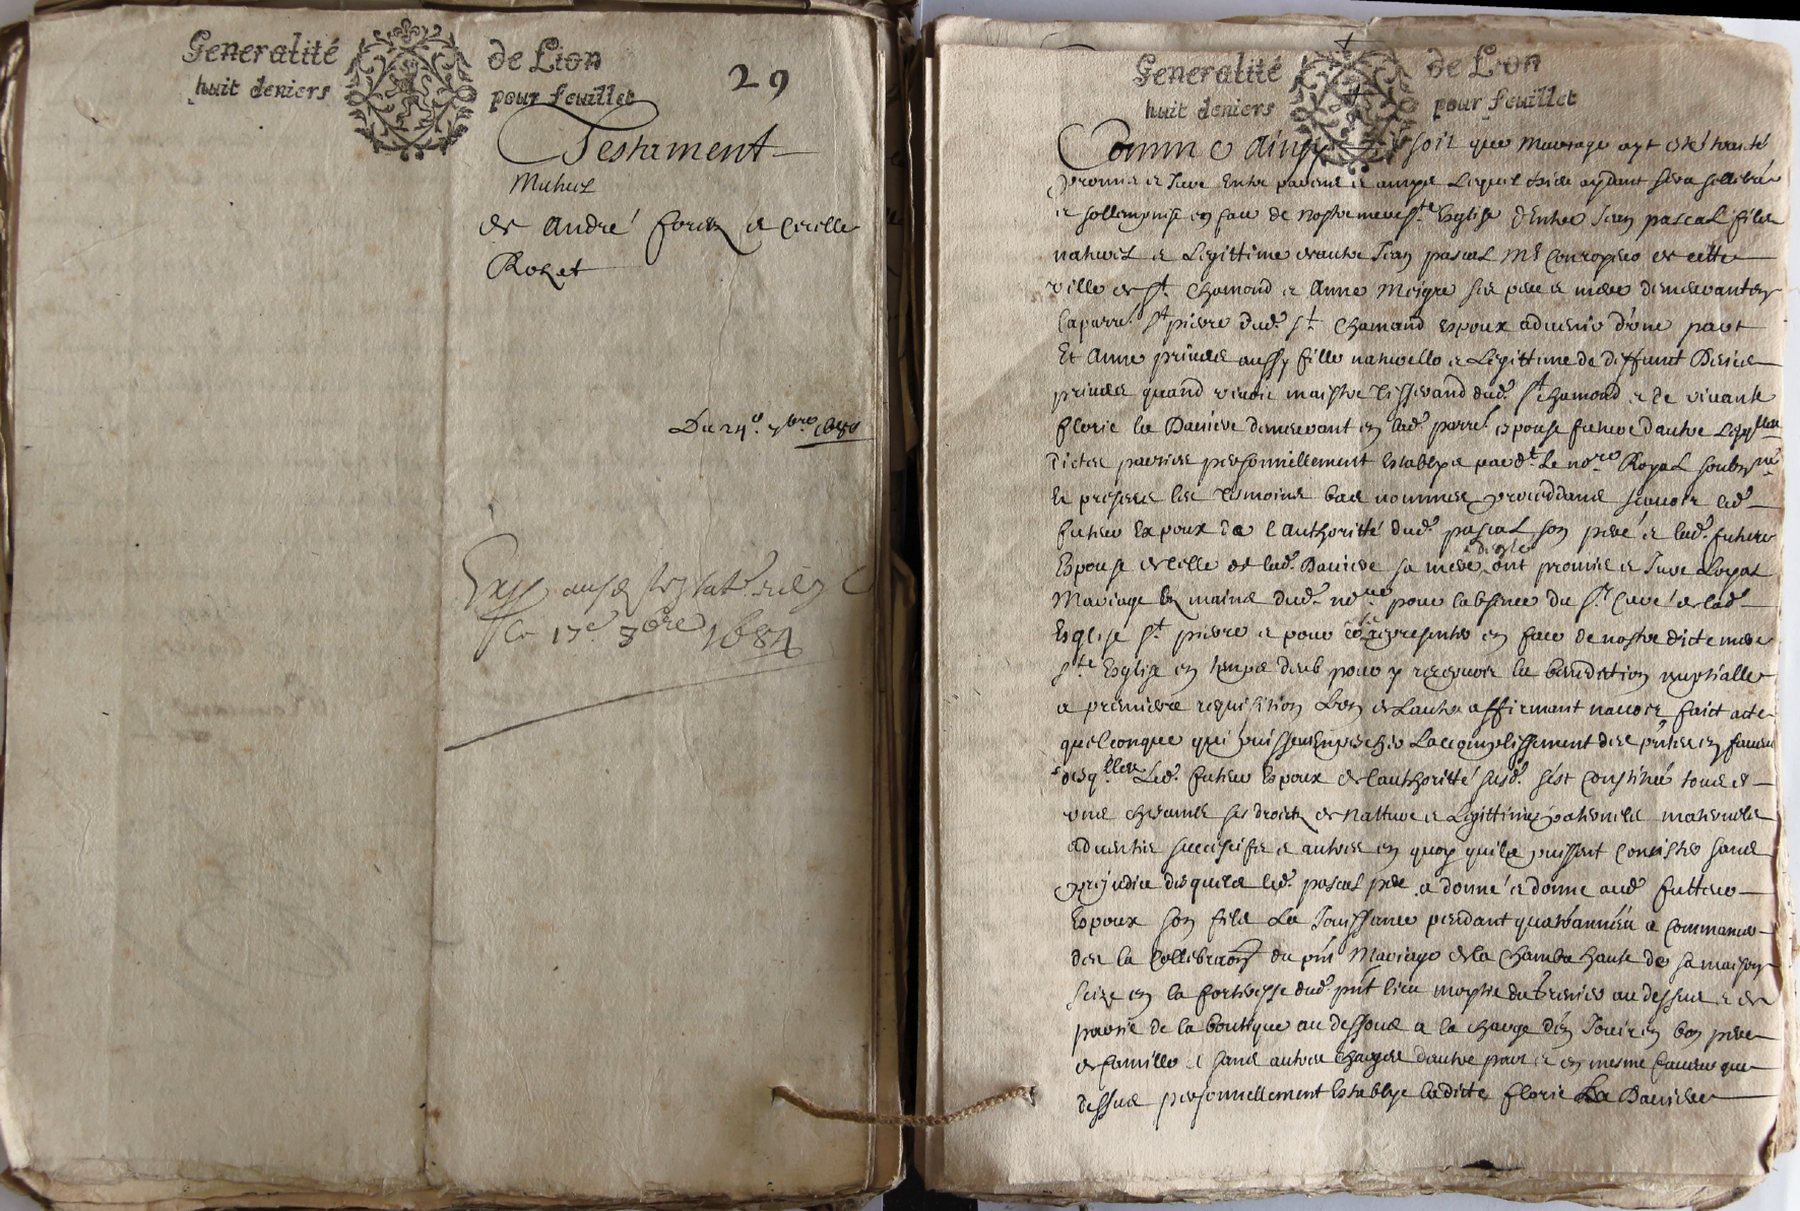 Generalité de Lion
huit deniers pour feuillet
29
Testament
Mutuel
de André forez et Cecille
Rozet
Du 24e. 7bre 1680
le 17e 8bre 1684
Generalité de Lion
huit deniers pour feuillet
Comme Ainsy soit que Mariage ayt esté traité
promis et Juré Entre parens et amys Lequel dieu aydant sera cellebré
et sollempnisé en face de nostre mere ste Esglise d'Entre Jean pascal fils
naturel et Legittime d'autre Jean pascal Me Conroyeur de cette
ville de st. Chamond et Anne Meigre ses pere et mere demeurants en
la parre. st pierre dud. st. Chamond espoux advenir d'une part
Et Anne aussy fille naturelle et Legittime de deffunt Denis
quand vivoit maistre tisserand dud. st chamond et de vivante
florie la Daniere demeurant en lad. parre. espouse future d'autre Lesqlles
dictes parties personnellement establyes pardt. Le nore Royal soubzné
et presens les tesmoins bas nommes proceddans scavoir led.
futeur Espoux de l'authoritté dud. pascal son pere et lad. future
Espouse de celle de lad. Daniere sa mere ont promis et Juré Loyal
Mariage Ez mains dud. nore pour l'absence du sr. Curé de lad.
Esglise st. pierre et pour se representer en face de nostre dicte mere
ste Esglise en temps deub pour y recepvoir la benediction nuptialle
a premiere requisition L'un de L'autre affirmant n'avoir faict acte
quelconque qui puisse Empescher L'accomplissement des pntes en faveur
desqlles Led. futeur Espoux de l'authoritté susd. s'est Constitué tous et
uns chascuns ses droicts de Natture et Legittime paternels maternels
adventifs successifs et autres en quoy qu'ils puissent Consister sans
prejudice desquels led. pascal pere a donné et donne aud. futteur
Espoux son fils La Jouissance pendant quatre années a Commancer
des la Cellebraon du pnt Mariage de la Chambre haute de sa maison
scize en la forteresse dud. pnt lieu moytié du Grenier au dessus et de
partie de la boutique au dessous a la charge d'en Jouir en bon pere
de famille et sans autres charges d'autre part et en mesme faveur que
dessus personnellement Establye ladicte florie La Daniere